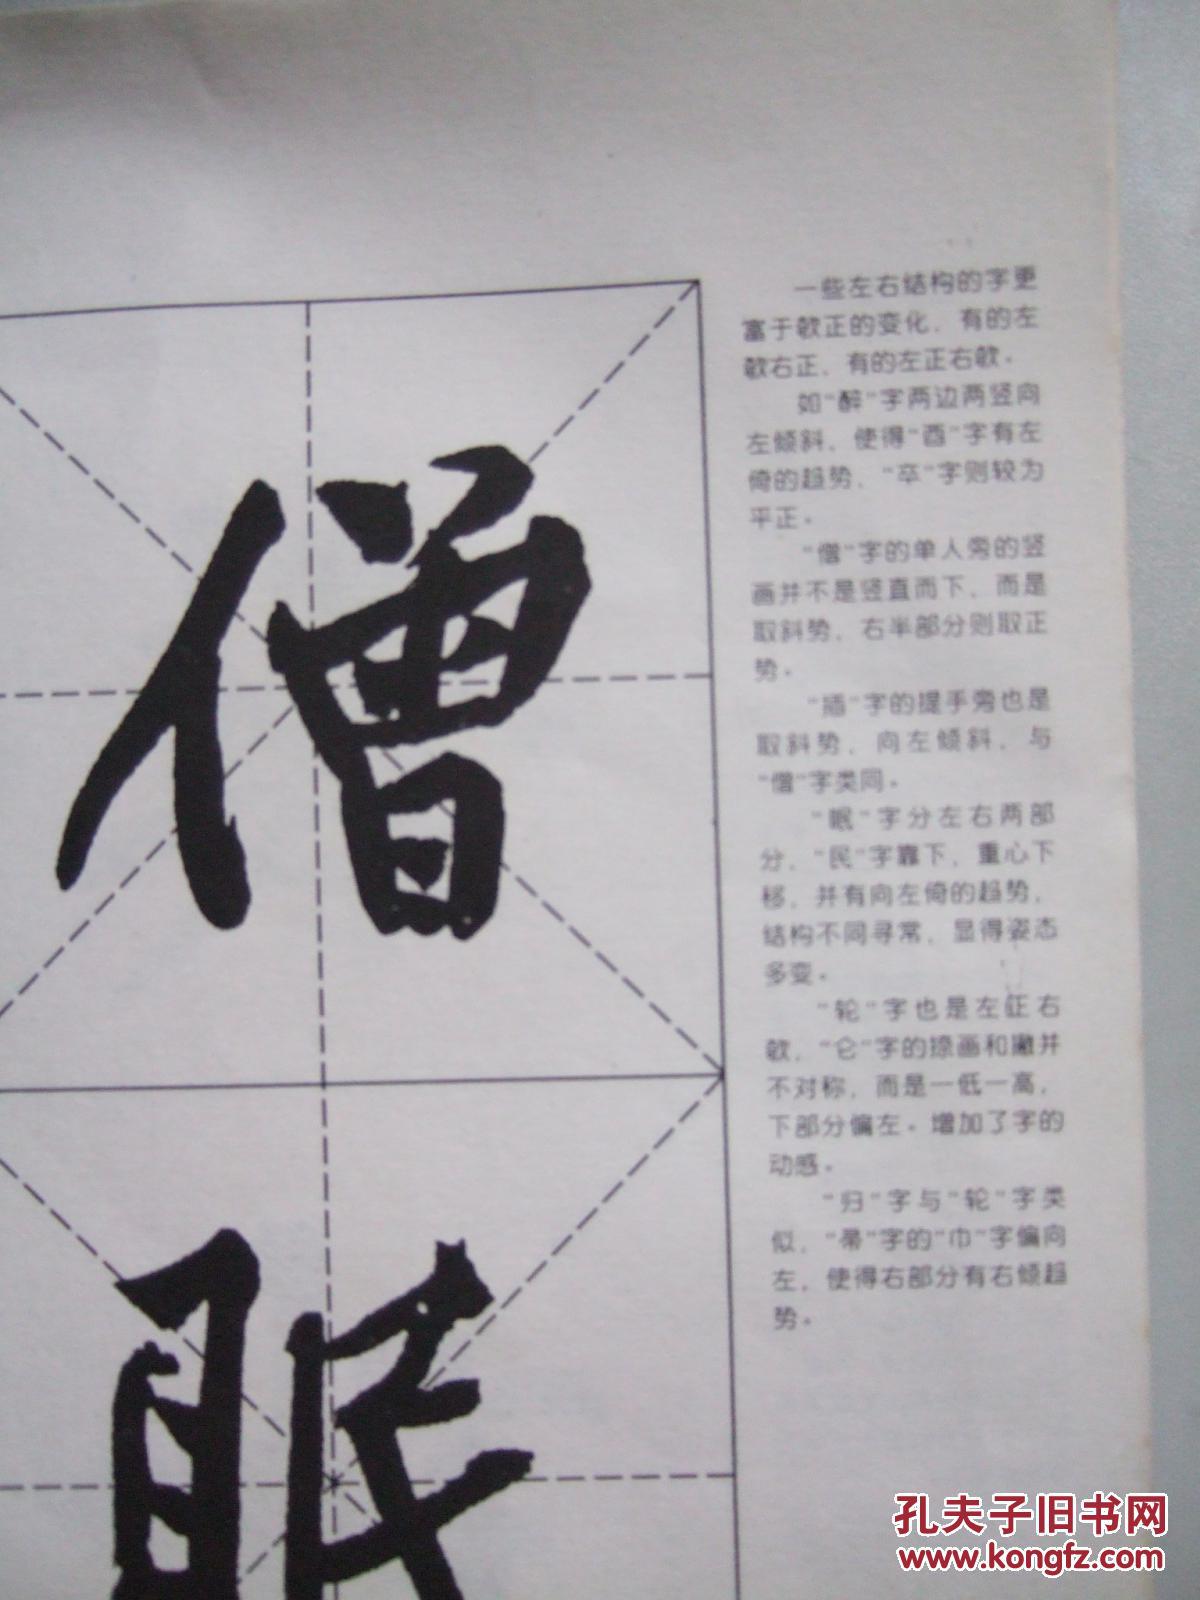 僧
眠
一些左右结构的字更
富于欹正的变化，有的左
欹右正，有的左正右欹。
如“醉”字两边两竖向
左倾斜，使得“酉”字有左
倚的趋势，“卒”字则较为
平正。
“僧”字的单人旁的竖
画并不是竖直而下，而是
取斜势，右半部分则取正
势。
“插”字的提手旁也是
取斜势，向左倾斜，与
“僧”字类同。
“眠”字分左右两部
分，“民”字靠下，重心下
移，并有向左倚的趋势，
结构不同寻常，显得姿态
多变。
“轮”字也是左正右
欹，“仑”字的捺画和撇并
不对称，而是一低一高，
下部分偏左。增加了字的
动感。
“归”字与“轮”字类
似，“帚”字的“巾”字偏向
左，使得右部分有右倾趋
势。
孔夫子旧书网
www.kongfz.com